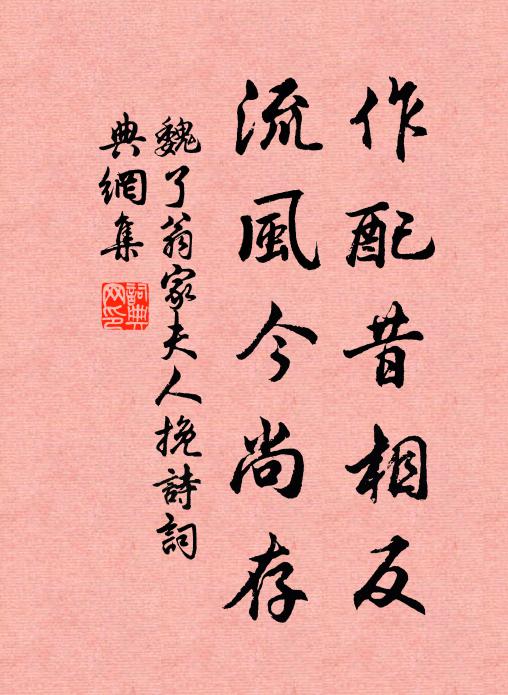 作配昔相反
流風今尚存
魏了翁家夫人挽詩詞
典網集
詞典
網印